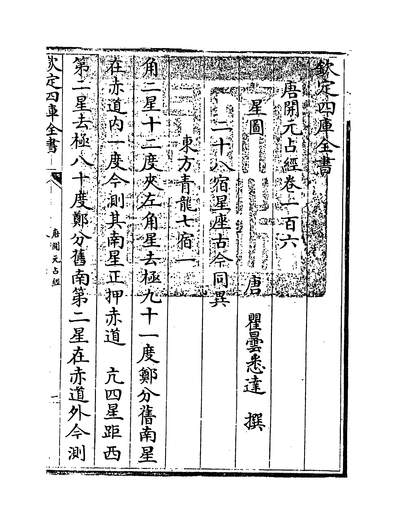 欽定四庫全書
唐開元占經卷一百六
唐 瞿曇悉達 撰
星圖
二十八宿星座古今同異
東方青龍七宿一
角二星十二度夾左角星去極九十一度鄭分舊南星
在赤道内一度今測其南星正押赤道 亢四星距西
第二星去極八十度鄭分舊南第二星在赤道外今測
欽定四庫全書
唐開元占經